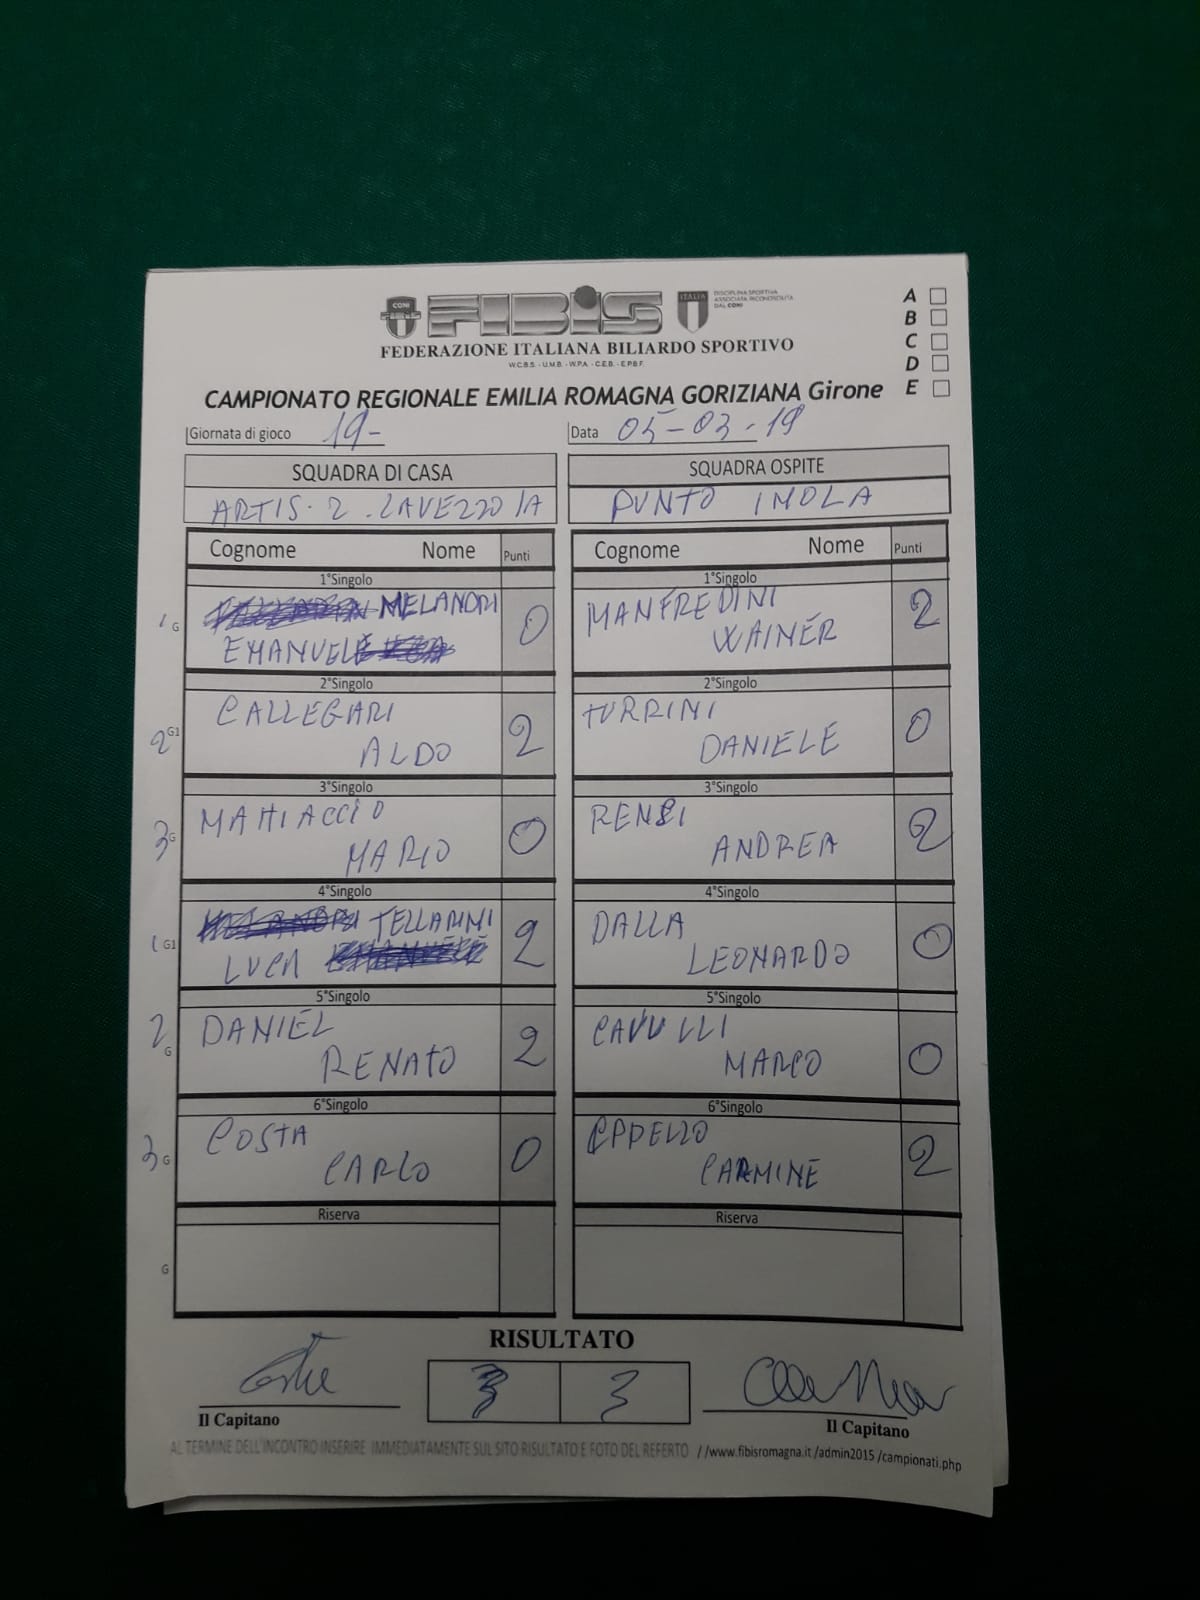 CONI
FIBIS
ITALIA
DISCIPLINA SPORTIVA
ASSOCIATA RICONOSCIUTA
DAL CONI
FEDERAZIONE ITALIANA BILIARDO SPORTIVO
W.C.B.S. - U.M.B. - W.P.A. - C.E.B. - E.P.B.F.
A
B
C
D
E
CAMPIONATO REGIONALE EMILIA ROMAGNA GORIZIANA Girone
Giornata di gioco 19-
Data 05-03-19
SQUADRA DI CASA SQUADRA OSPITE
ARTIS. 2 . LAVEZZOLA PUNTO IMOLA
Cognome Nome Punti Cognome Nome Punti
1°Singolo 1°Singolo
1 G MELANDRI 0 MANFREDINI 2
EMANUELE WAINER
2°Singolo 2°Singolo
2 G1 CALLEGARI 2 TURRINI 0
ALDO DANIELE
3°Singolo 3°Singolo
3 G MAHIACCIO 0 RENZI 2
MARIO ANDREA
4°Singolo 4°Singolo
1 G1 TELLARINI 2 DALLA 0
LUCA LEONARDO
5°Singolo 5°Singolo
2 G DANIEL 2 CAVULLI 0
RENATO MARCO
6°Singolo 6°Singolo
3 G COSTA 0 2
CARLO CARMINE
Riserva Riserva
G
RISULTATO
3 3
Il Capitano Il Capitano
AL TERMINE DELL'INCONTRO INSERIRE IMMEDIATAMENTE SUL SITO RISULTATO E FOTO DEL REFERTO //www.fibisromagna.it /admin2015 /campionati.php